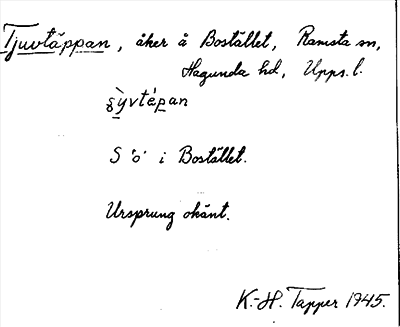 Tjuvtäppan, åker å Bostället, Ramsta sn,
Hagunda hd, Upps. l.
ʂỳvtépan
S ö i Bostället.
Ursprung okänt.
K.-H. Tapper 1945.